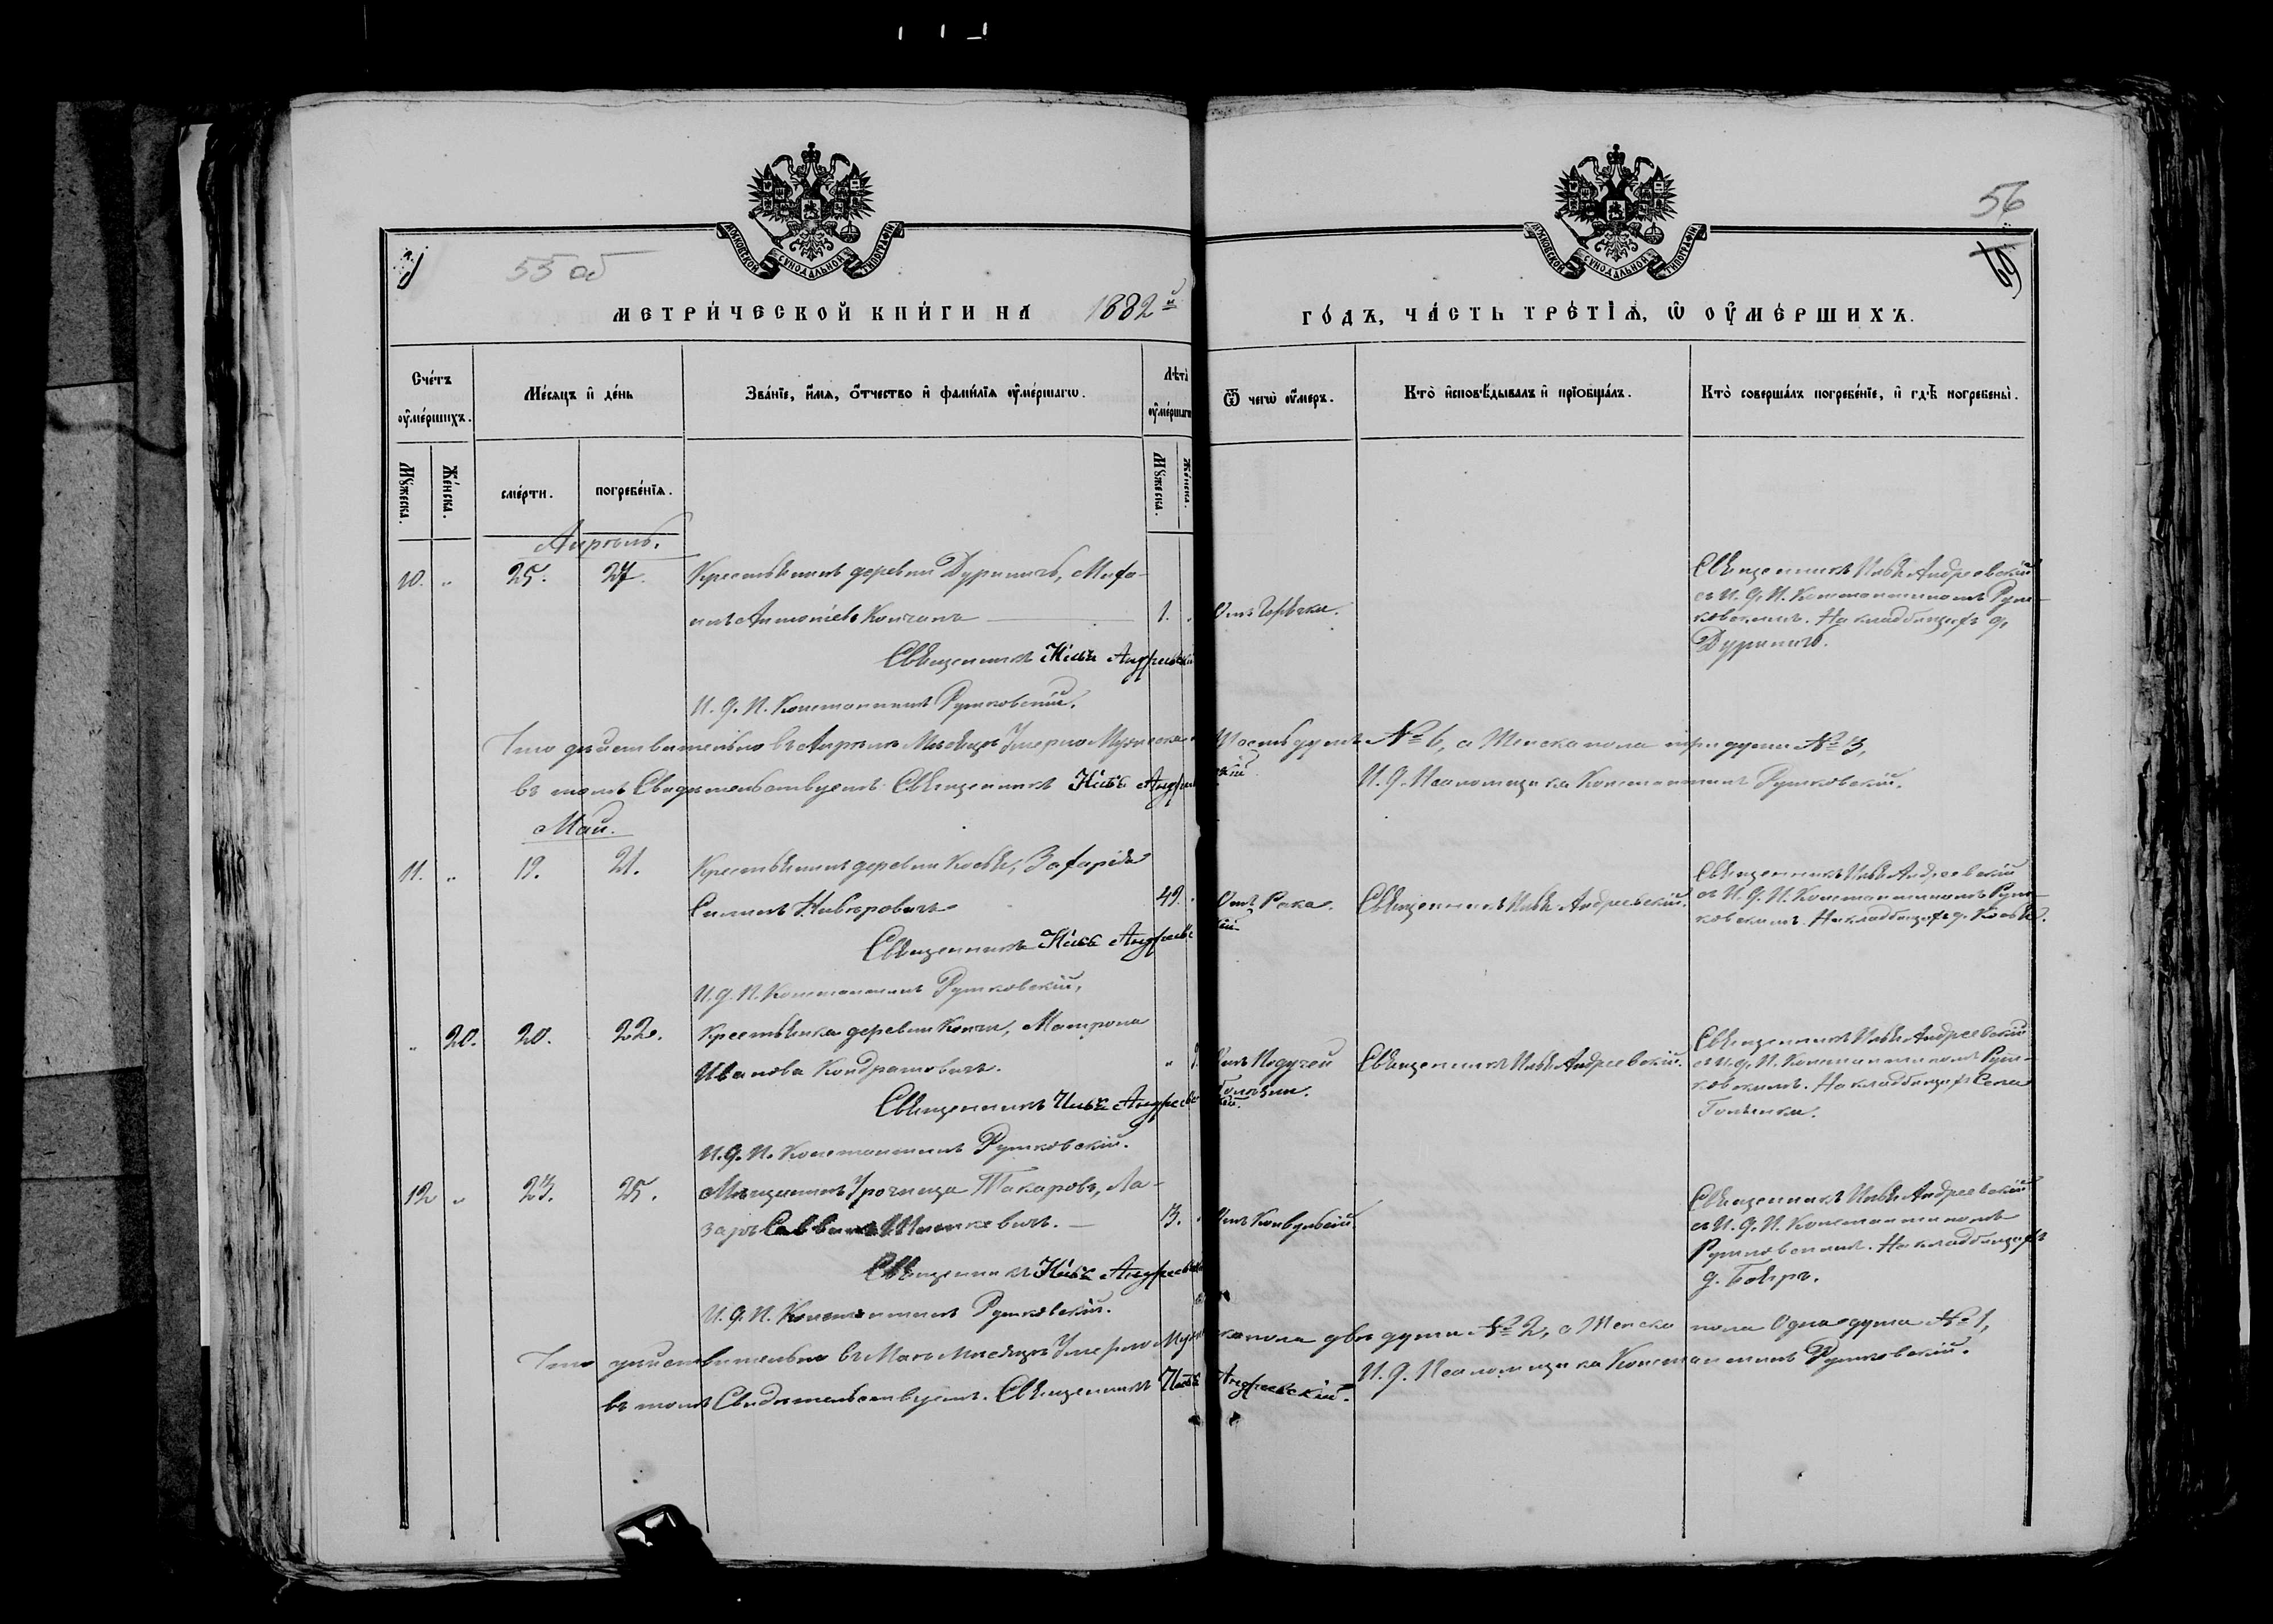 56
55 об
МОСКОВСКОЙ СѴНОДАЛЬНОЙ ТИПОГРАФІИ
МОСКОВСКОЙ СѴНОДАЛЬНОЙ ТИПОГРАФІИ
МЕТРИ́ЧЕСКОЙ КНИ́ГИ НА 1882й
ГО́ДЪ, ЧА́СТЬ ТРЕ́ТІѦ, Ѡ ОУ҆МЕ́РШИХЪ.
Сче́тъ оу҆ме́ршихъ.
Мѣ́сяцъ и҆ де́нь
Зва́нїе, и҆́мѧ, ѻ҆́тчество и҆ фами́лїѧ оу҆ме́ршагѡ.
Лѣта̀ оу҆ме́ршагѡ
Ѿ чегѡ̀ оу҆́меръ.
Кто̀ и҆сповѣ́дывалъ и҆ прїѻбща́лъ.
Кто̀ соверша́лъ погребе́нїе, и҆ гдѣ̀ погребены̀.
Мꙋ́жеска.
Же́нска.
сме́рти.
погребе́нїѧ.
Мꙋ́жеска.
Же́нска.
Апрѣль.
10. „ 25. 27. Крестьянинъ деревни Дуриничъ,
Антоніевъ Кончанъ 1. Отъ Горячки.
Священникъ Илья Андреевскій
съ И. Д. П. Константиномъ Рут-
ковскимъ. На кладбищѣ д.
Дуриничъ.
Священникъ Илья Андреевскій
И. Д. П. Константинъ Рутковскій.
Что дѣйствительно въ Апрѣлѣ Мѣсяцѣ Умерло Мужеска шесть душъ № 6, а Женска пола три души № 3,
въ томъ Свидѣтельствуемъ. Священникъ Илья Андреевскій И. Д. Псаломщика Константинъ Рутковскій.
Май.
11. „ 19. 21. Крестьянинъ деревни Косьи, Захарія
Симинъ 49. Отъ Рака. Священникъ Илья Андреевскій.
Священникъ Илья Андреевскій
съ И. Д. П. Константиномъ Рут-
ковскимъ. На кладбищѣ д. Косьи.
Священникъ Илья Андреевскій
И. Д. П. Константинъ Рутковскій.
„ 20. 20. 22. Крестьянка деревни Матрона
Иванова Кондратовичъ. „ Отъ Падучей болѣзни. Священникъ Илья Андреевскій.
Священникъ Илья Андреевскій
съ И. Д. П. Константиномъ Рут-
ковскимъ. На кладбищѣ Села
Голынки.
Священникъ Илья Андреевскій.
И. Д. П. Константинъ Рутковскій.
12 „ 23. 25. Мѣщанинъ Урочища Токаровъ, Ла-
заръ 13. Отъ Конвульсій.
Священникъ Илья Андреевскій
съ И. Д. П. Константиномъ
Рутковскимъ. На кладбищѣ
д. Бояръ.
Священникъ Илья Андреевскій
И. Д. П. Константинъ Рутковскій.
Что дѣйствительно въ Маѣ Мѣсяцѣ Умерло Мужеска пола двѣ души № 2, а Женска пола Одна душа № 1,
въ томъ Свидѣтельствуемъ. Священникъ Илья Андреевскій. И. Д. Псаломщика Константинъ Рутковскій.